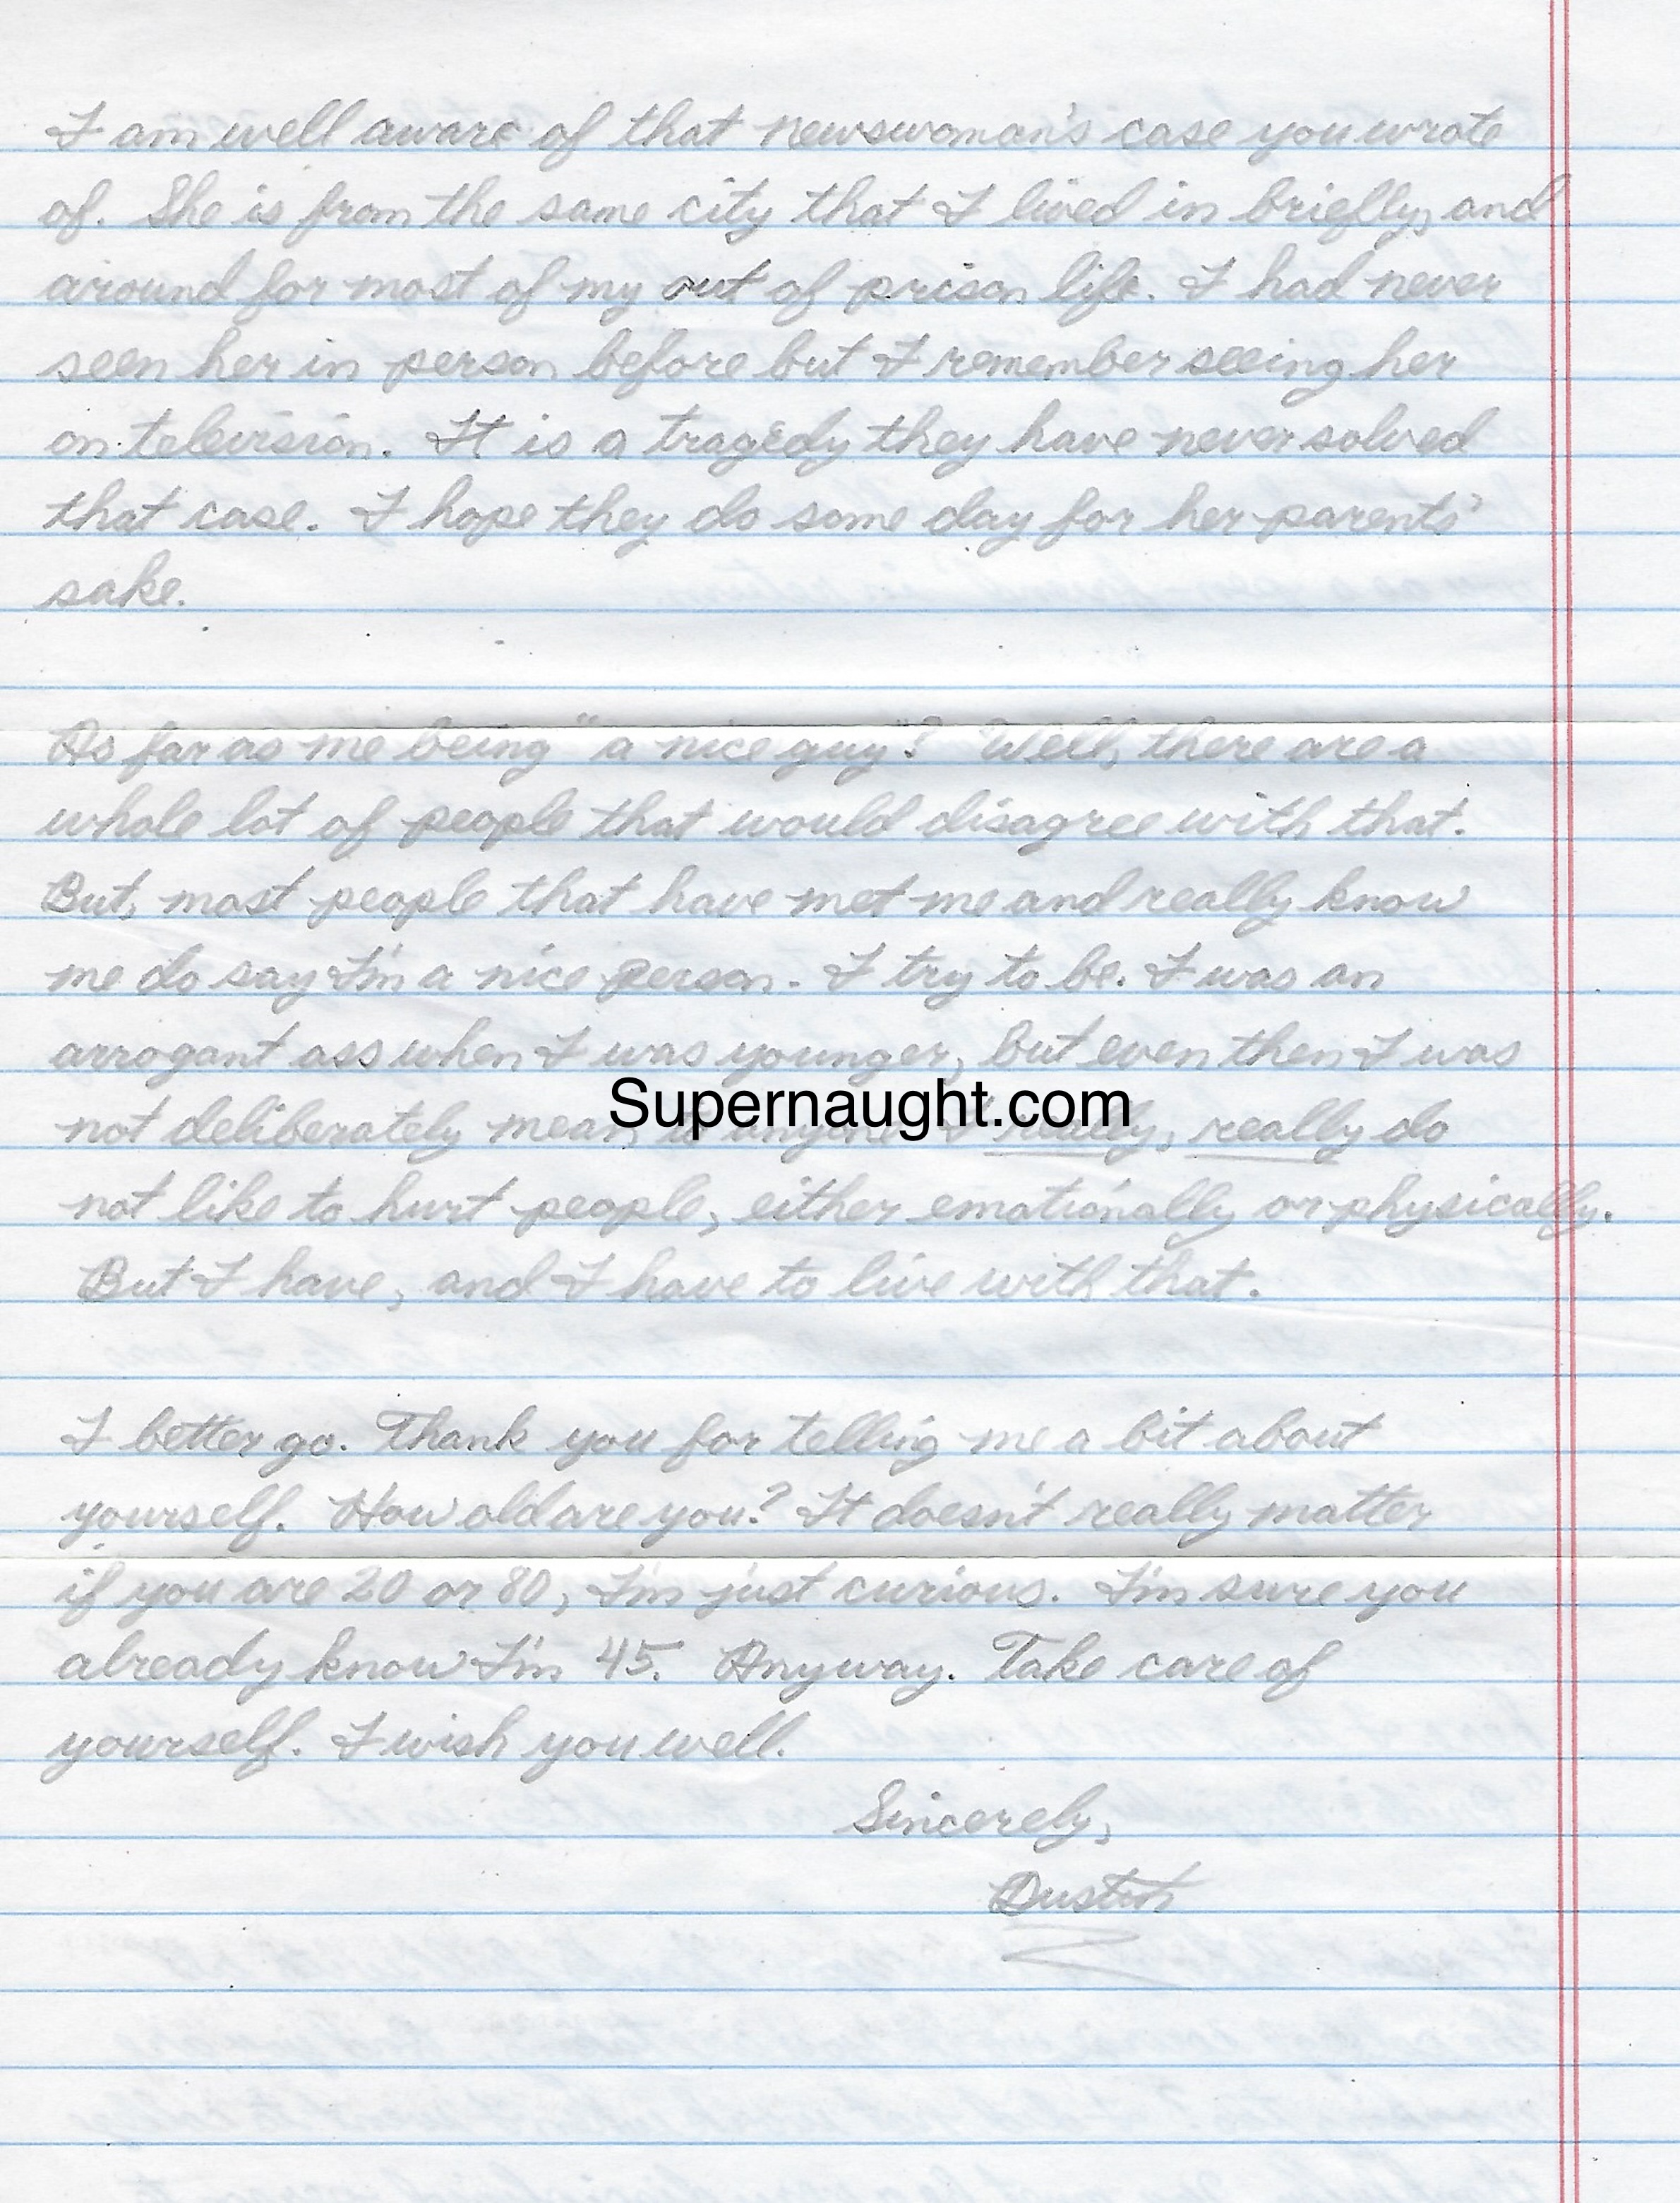 I am well aware of that newswoman's case you wrote
of. She is from the same city that I lived in briefly, and
around for most of my out of prison life. I had never
seen her in person before but I remember seeing her
on television. It is a tragedy they have never solved
that case. I hope they do some day for her parents'
sake.
As far as me being "a nice guy"? Well, there are a
whole lot of people that would disagree with that.
But, most people that have met me and really know
me do say I'm a nice person. I try to be. I was an
arrogant ass when I was younger, but even then I was
Supernaught.com
not deliberately mean to anyone. I really, really do
not like to hurt people, either emotionally or physically.
But I have, and I have to live with that.
I better go. Thank you for telling me a bit about
yourself. How old are you? It doesn't really matter
if you are 20 or 80, I'm just curious. I'm sure you
already know I'm 45. Anyway. Take care of
yourself. I wish you well.
Sincerely,
Dustin